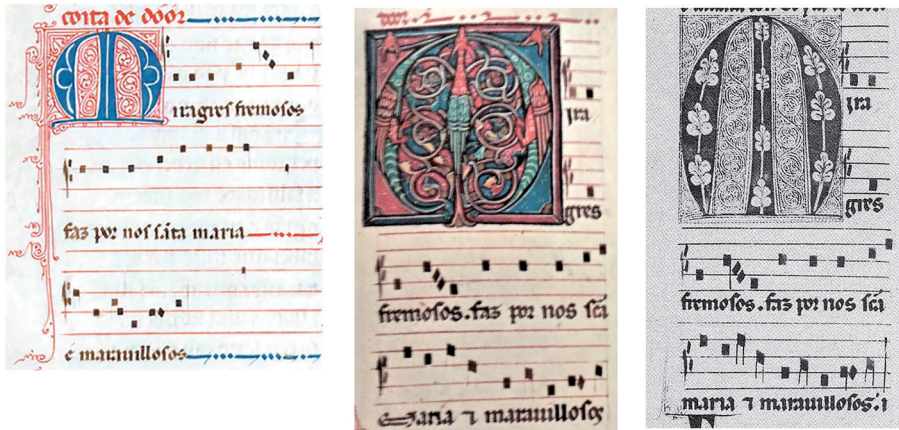 coita de door
Miragres fremosos
faz por nos sãta maria
e marauillosos
door
Mira
gres
fremosos. faz por nos scã
Maria ⁊ marauillosos
Mira
gres
fremosos. faz por nos scã
maria ⁊ marauillosos. ⁊